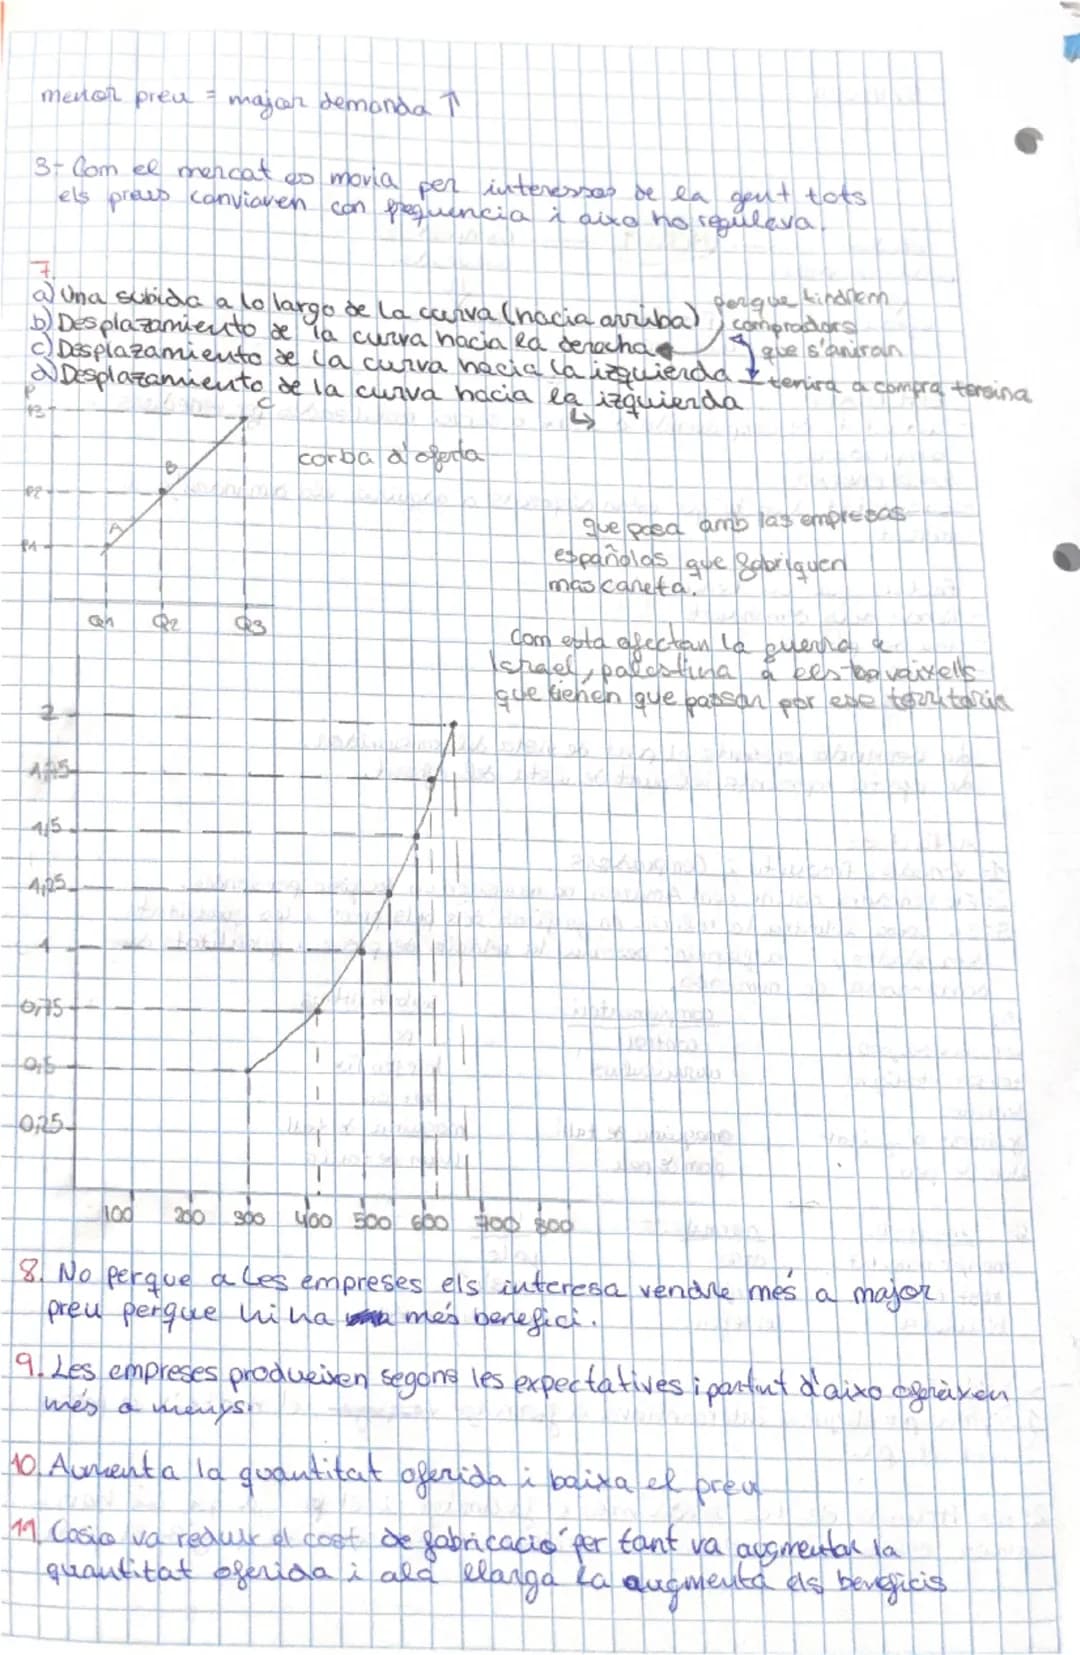 menor preu = major demanda ↑
3- Com el mercat es movia per interessos de la gent tots
els preus canviaven con frequencia i aixo ho regulava.
7.
a) Una subida a lo largo de la curva (hacia arriba)
b) Desplazamiento de la curva hacia la derecha
c) Desplazamiento de la curva hacia la izquierda
d) Desplazamiento de la curva hacia la izquierda
perque tindrem
compradors
que s'aniran
tenira a compra
P
P3
P2
P1
A
B
C
Q1 Q2 Q3
corba d'oferta
que pasa amb las empresas
españolas que fabriquen
mascareta.
Com esta afectan la guerra a
Israel, palestina a els vaixells
que tienen que passar por ese territorio
2
1,75
1,5
1,25
1
0,75
0,5
0,25
100 200 300 400 500 600 700 800
8. No perque a les empreses els interesa vendre més a major
preu perque hi ha més benefici.
9. Les empreses produeixen segons les expectatives i partint d'aixo ofereixen
més o menys.
10. Aumenta la quantitat oferida i baixa el preu
11. Casio va reduir el cost de fabricació per tant va augmentar la
quantitat oferida i ala llarga la augmenta els beneficis